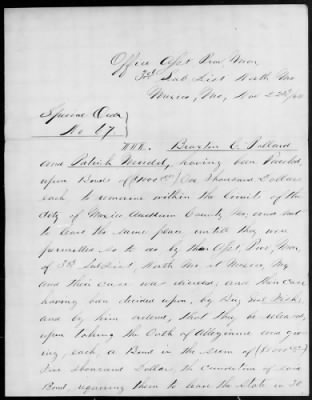 Office Asst Prov Mar
3rd Sub Dist North Mo
Mexico, Mo, Nov 22nd/64
Special Order
No 67
Braxton C. Pollard
and Patrick Mendel, having been
upon Bonds of ($1000.00) One Thousand Dollars
each to remain within the limits of the
City of Mexico Audrain County, Mo, and not
to leave the same place untill they were
permitted so to do by the Asst Prov, Mar,
of 3rd Sub Dist, North Mo, at Mexico, Mo
and their case was decided; and their case
having been decided upon, by Brig Genl Fisk;
and by him ordered, that they be released,
upon taking the Oath of Allegiance and giv-
ing, each, a Bond in the sum of ($1000.00)
One thousand Dollars, the condition of said
Bond requiring them to leave the State in 30